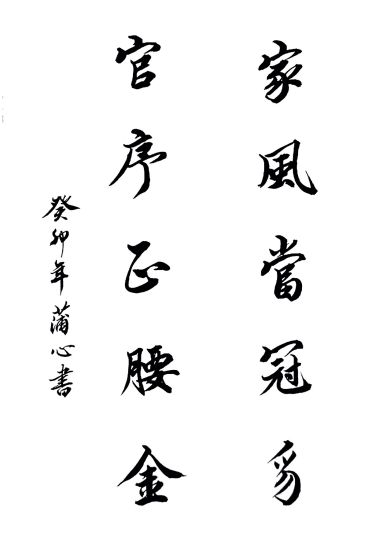 家風當冠豸
官序正腰金
癸卯年蒲心書